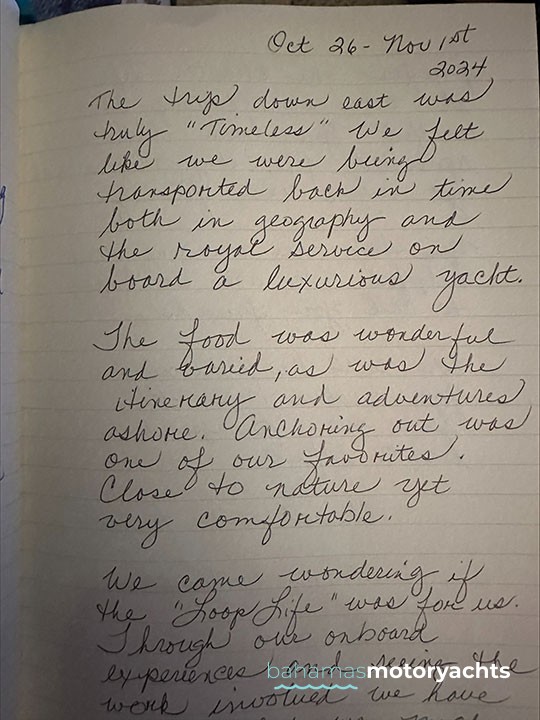 Oct 26 - Nov 1st
2024
The trip down east was
truly "Timeless" We felt
like we were being
transported back in time
both in geography and
the royal service on
board a luxurious yacht.
The food was wonderful
and varied, as was the
itinerary and adventures
ashore. Anchoring out was
one of our favorites.
Close to nature yet
very comfortable.
We came wondering if
the "Loop Life" was for us.
Through our onboard
experiences and seeing the
bahamasmotoryachts
work involved we have